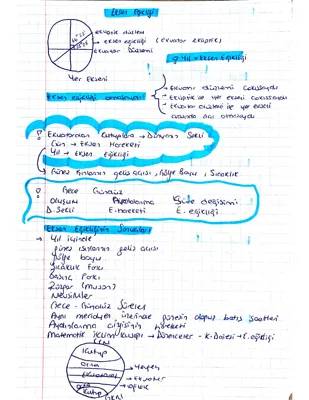 Eksen Eğikliği
ekliptik düzlemi
eksen eğikliği (ekvator ekliptik)
ekvator düzlemi
Yer Ekseni
Yıl → Eksen Eğikliği
Eksen eğikliği olmasaydı
Ekvator düzlemi
Ekliptik ve yer ekseni
Ekvator düzlemi ile yer ekseni
arasında olmazdı
Ekvatordan Kutuplara → Dünyanın Şekli
Gün → Eksen Hareketi
Yıl → Eksen eğikliği
Güneş ışınların geliş açısı, Gölge boyu, Sıcaklık
Gece Gündüz
Oluşum Aydınlanma Süre değişimi
D. Şekli E. hareketi E. eğikliği
Eksen Eğikliğinin Sonuçları
→ Yıl içinde
güneş ışınlarının geliş açısı
Gölge boyu
Sıcaklık Farkı
Basınç Farkı
Rüzgar (muson)
Mevsimler
Gece-Gündüz Süreler
Aynı meridyen üzerinde güneşin doğuş batış saatleri
Aydınlanma çizgisinin hareketi
Matematik iklim kuşağı → Dönenceler - K. Dairesi → E. eğikliği
Kutup
Orta
Ekvatoral
Kutup
Yengeç
Ekvator
Oğlak